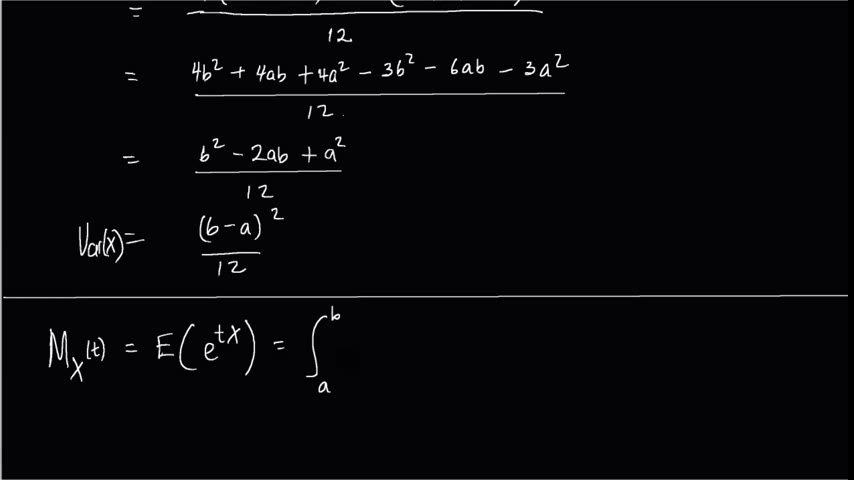 = 12
= 4b² + 4ab + 4a² - 3b² - 6ab - 3a² / 12
= b² - 2ab + a² / 12
Var(X) = (b-a)² / 12
M_X(t) = E(e^{tX}) = ∫_a^b